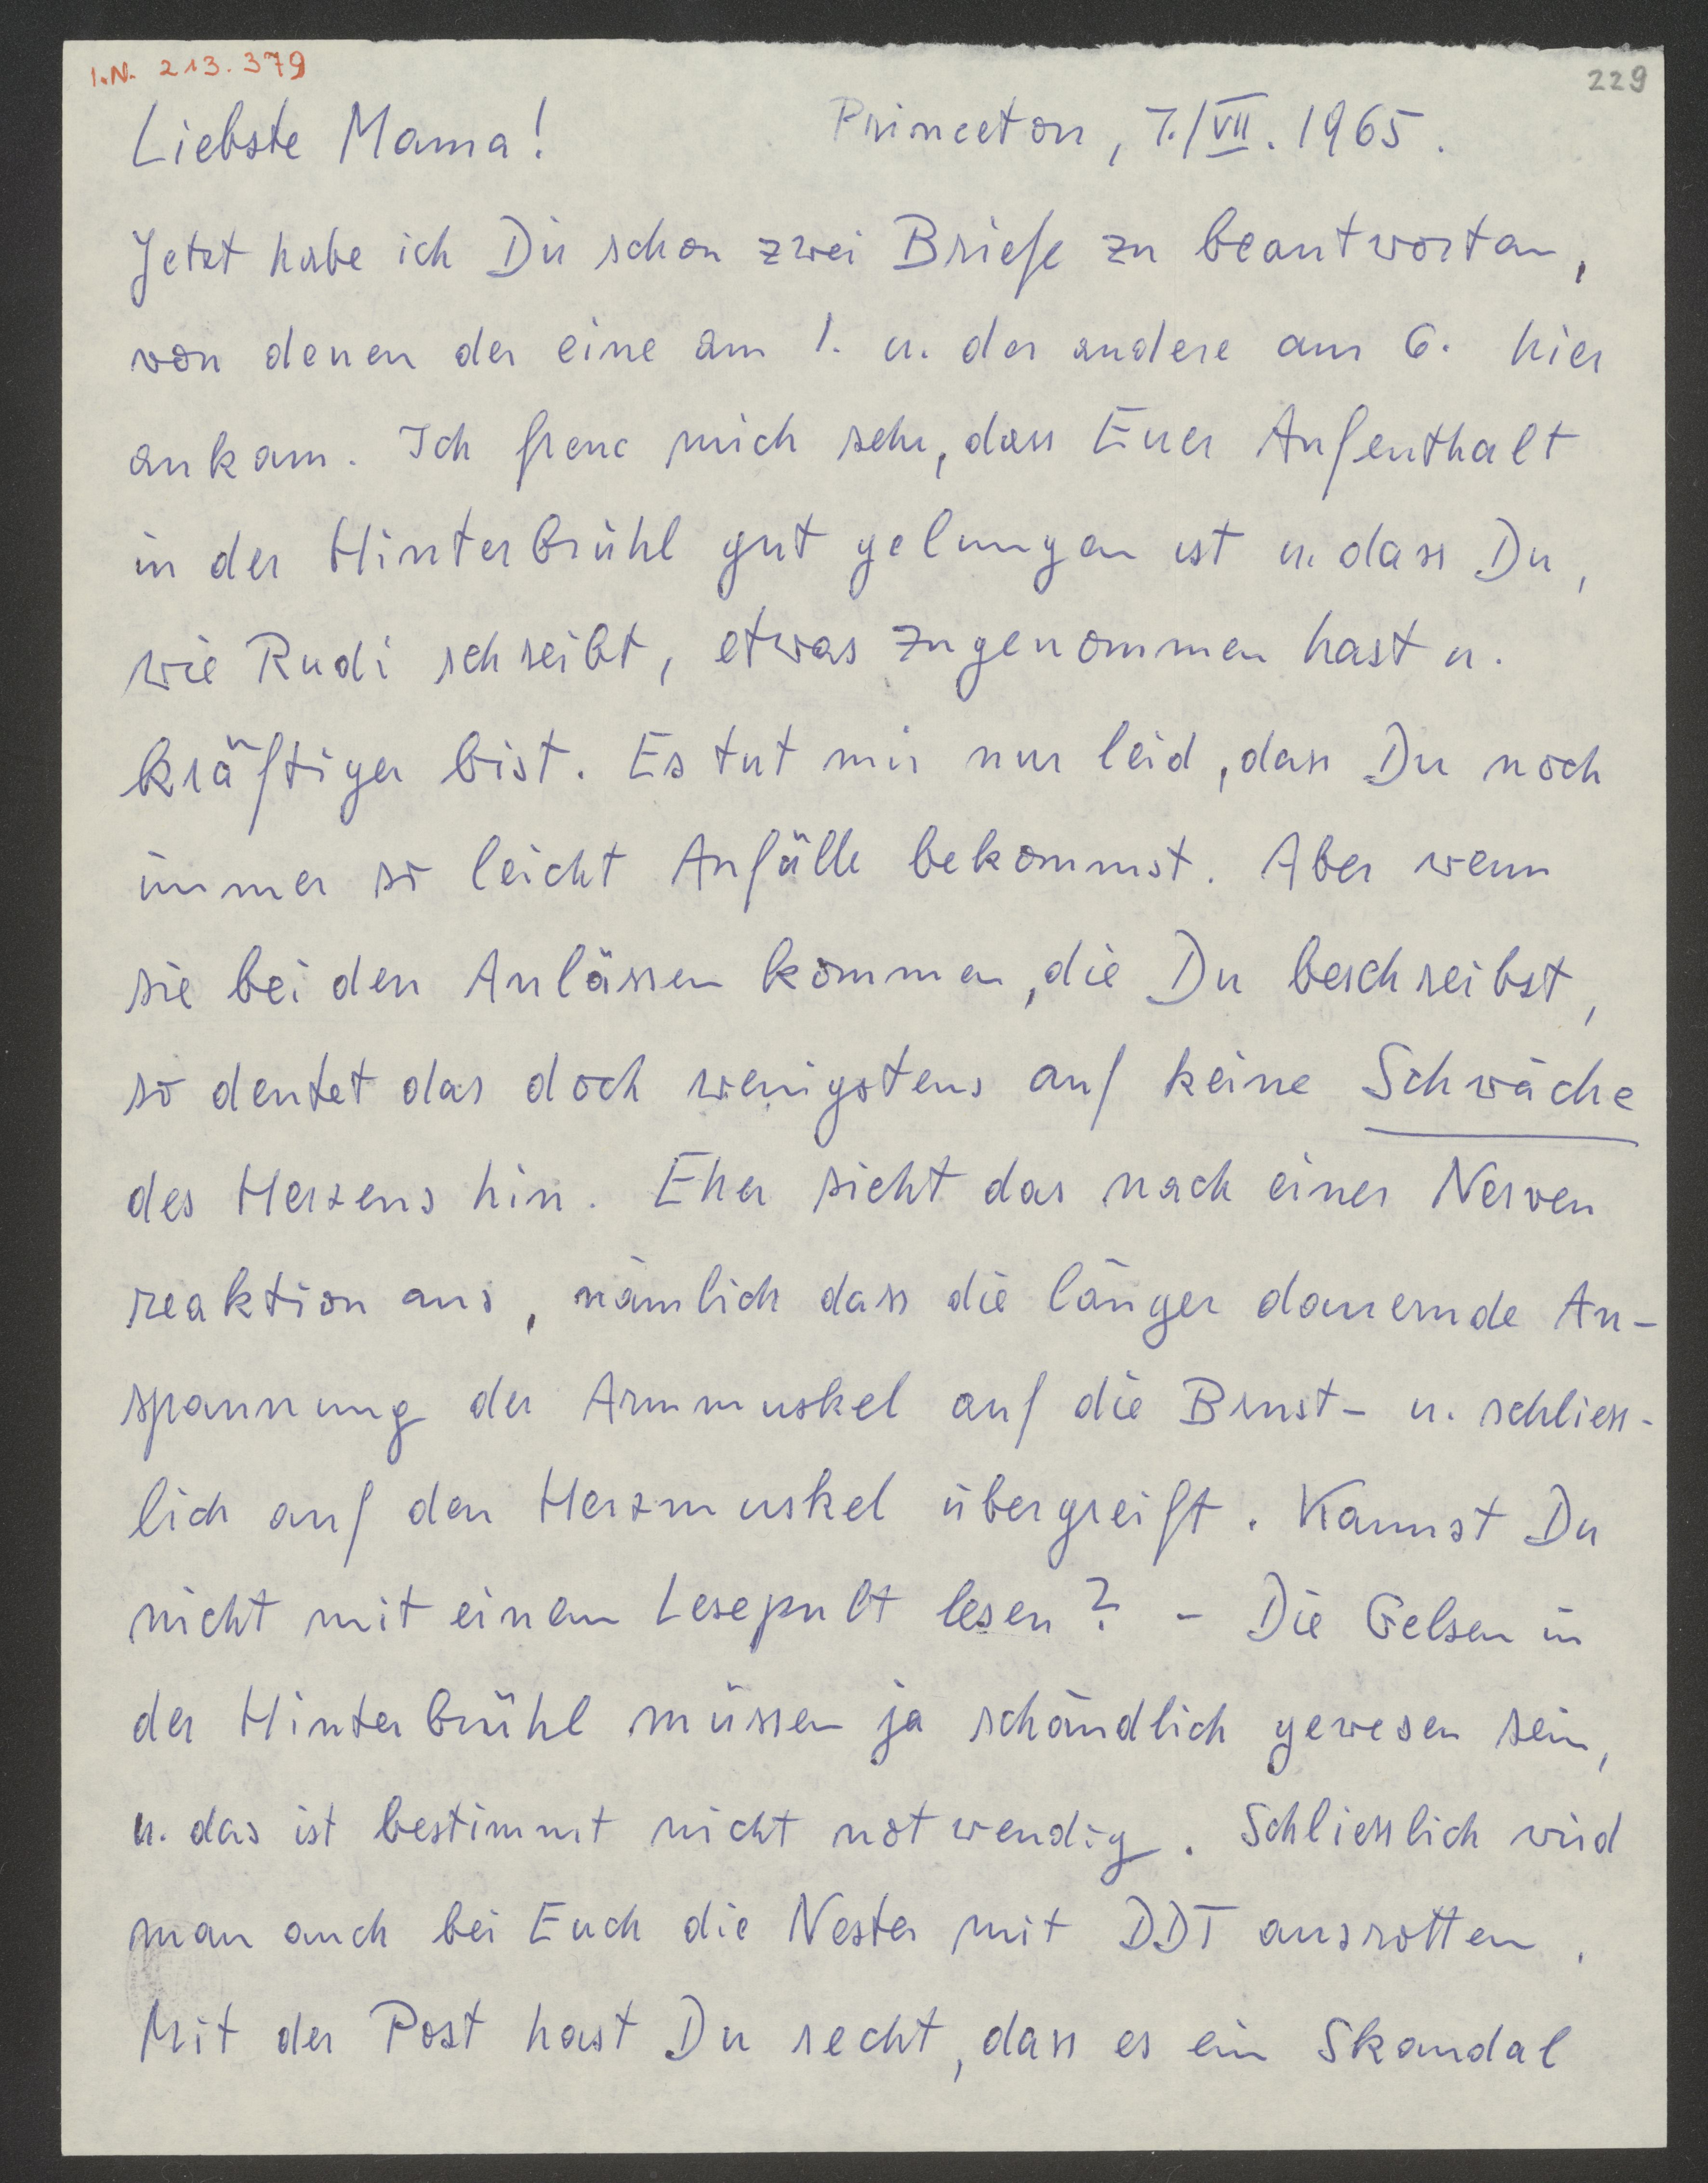 I.N. 213.379
229
Liebste Mama! Princeton, 7./VII. 1965.
Jetzt habe ich Dir schon zwei Briefe zu beantworten,
von denen der eine am 1. u. der andere am 6. hier
ankam. Ich freue mich sehr, dass Euer Aufenthalt
in der Hinterbrühl gut gelungen ist u. dass Du,
wie Rudi schreibt, etwas zugenommen hast u.
kräftiger bist. Es tut mir nur leid, dass Du noch
immer so leicht Anfälle bekommst. Aber wenn
sie bei den Anlässen kommen, die Du beschreibst,
so deutet das doch wenigstens auf keine Schwäche
des Herzens hin. Eher sieht das nach einer Nerven
reaktion aus, nämlich dass die länger dauernde An-
spannung der Armmuskel auf die Brust- u. schliess-
lich auf den Herzmuskel übergreift. Kannst Du
nicht mit einem Lesepult lesen? - Die Gelsen in
der Hinterbrühl müssen ja schändlich gewesen sein,
u. das ist bestimmt nicht notwendig. Schliesslich wird
man auch bei Euch die Nester mit DDT ausrotten.
Mit der Post hast Du recht, dass es ein Skandal